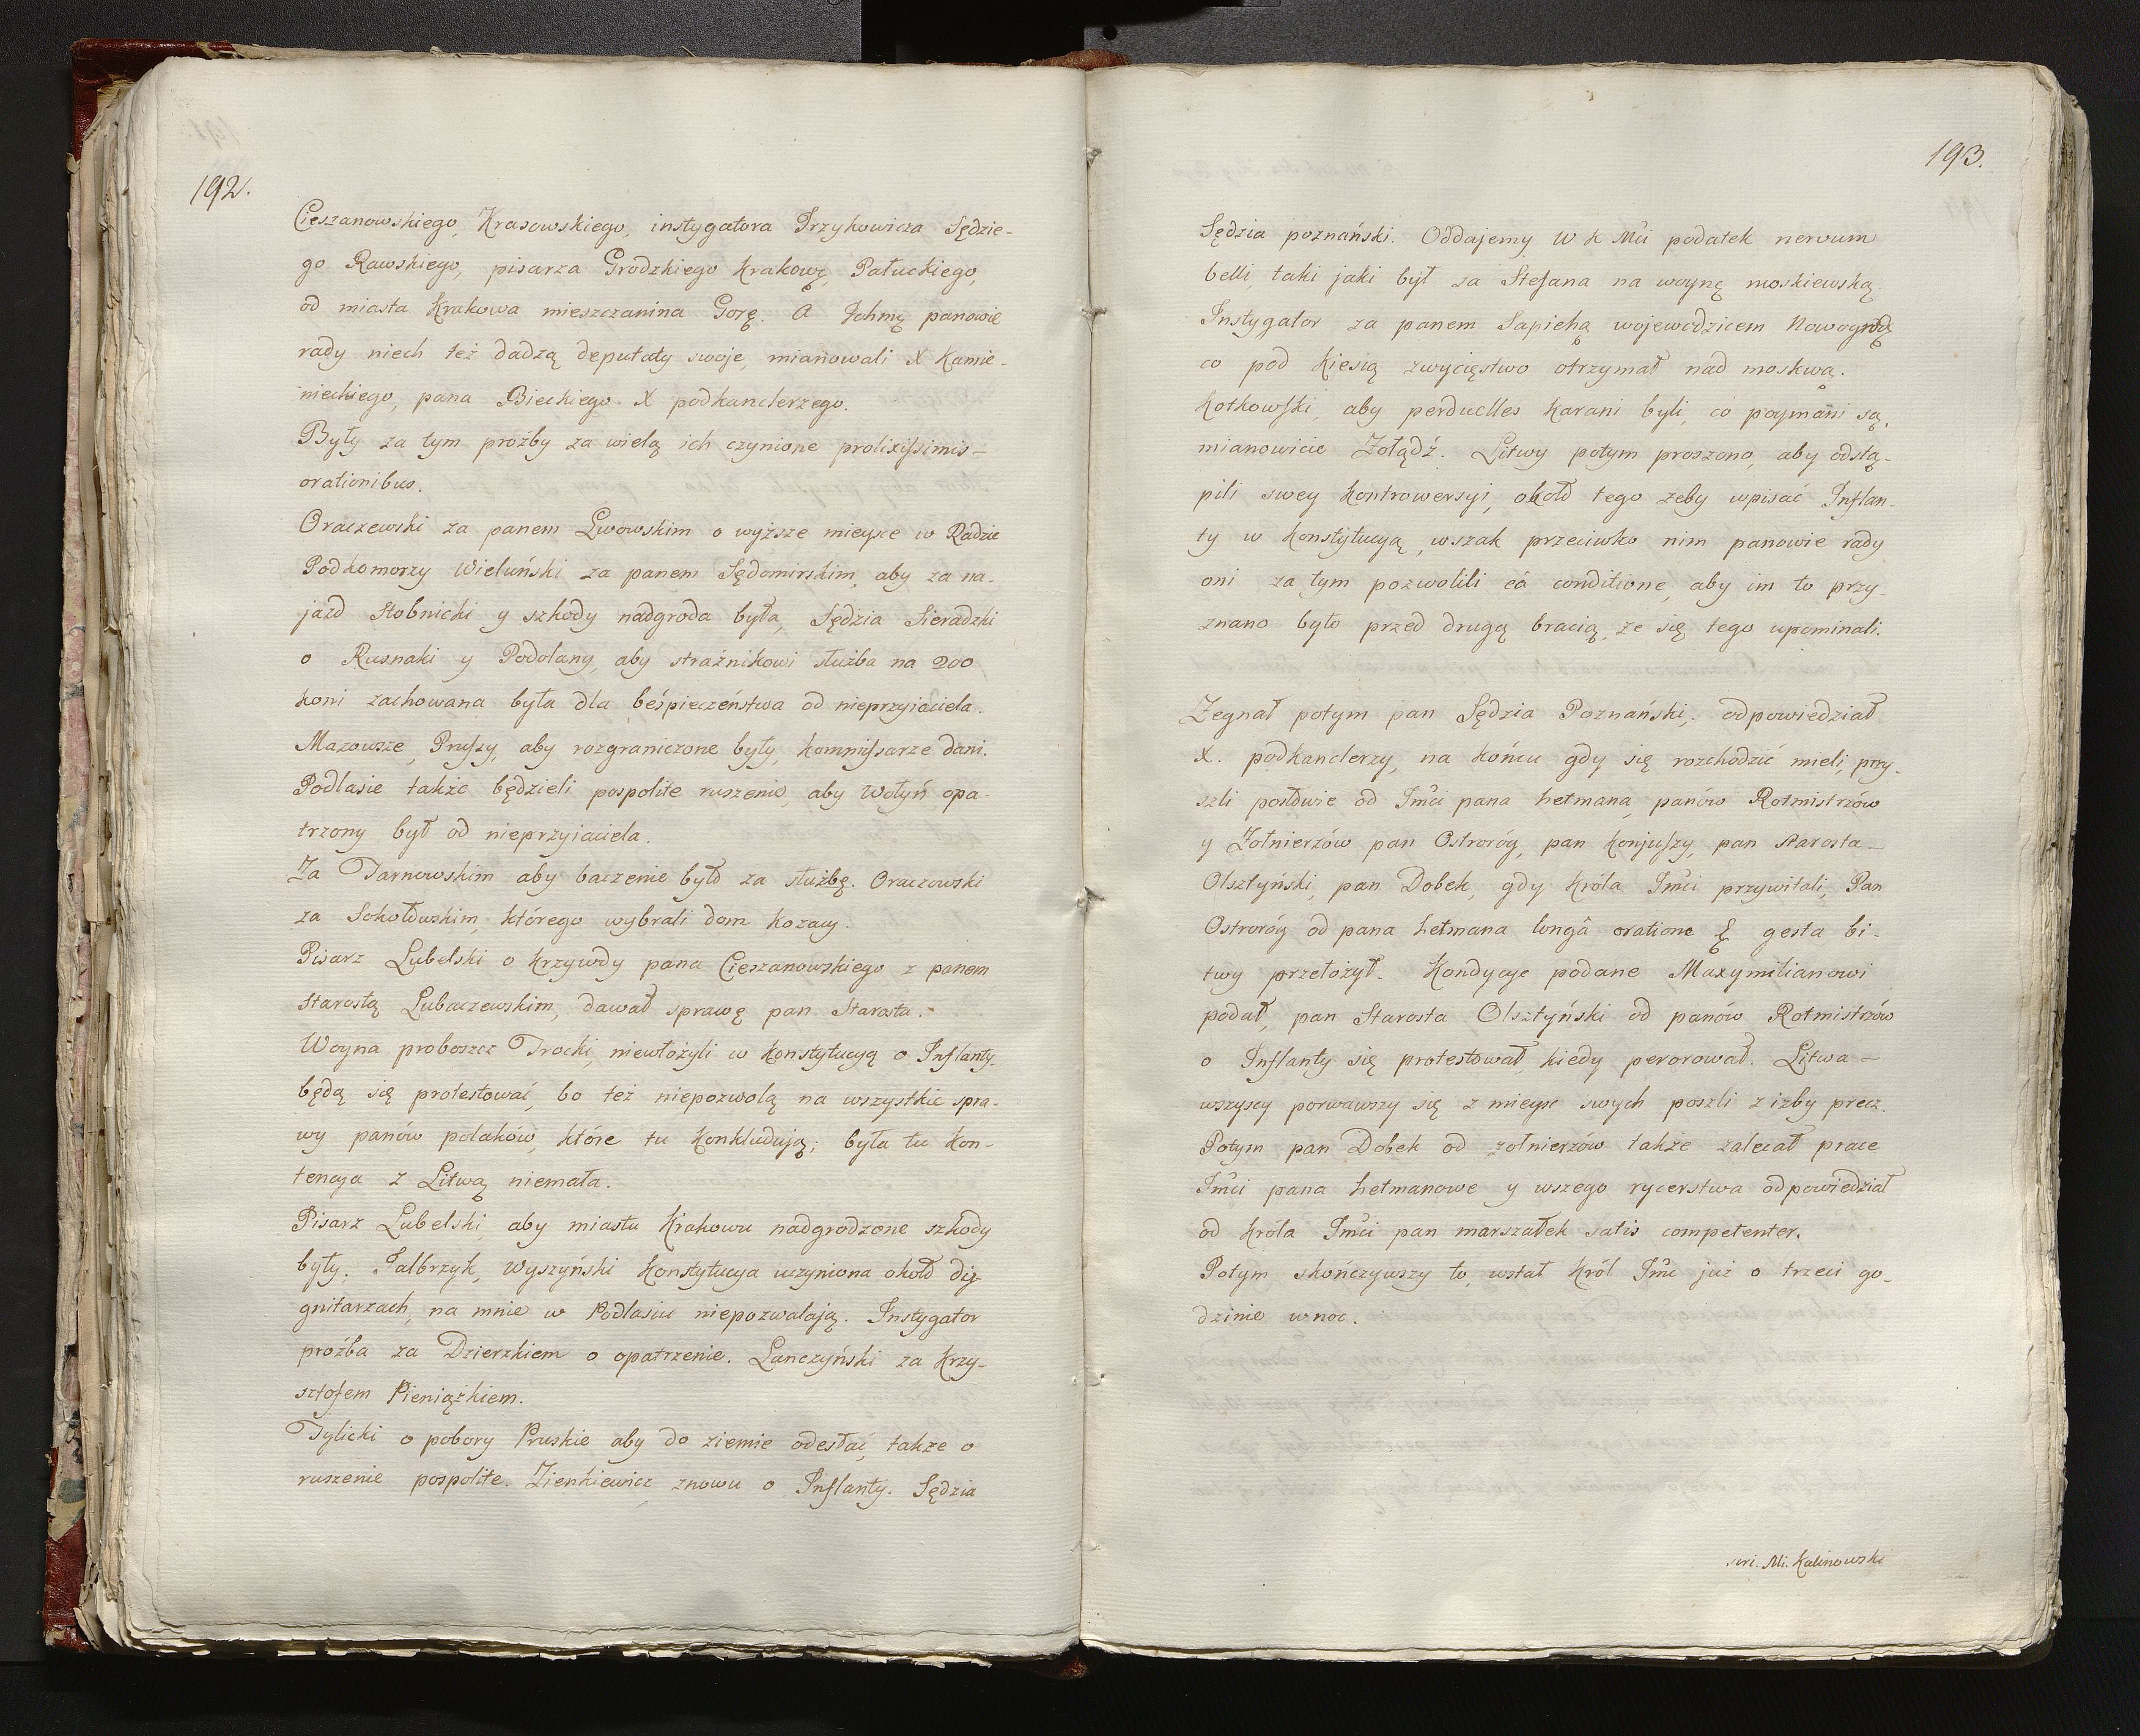 192.
Cieszanowskiego, Krasowskiego, instygatora Irzykowicza Sędzie-
go Rawskiego, pisarza Grodzkiego Krakowę, Pałuckiego,
od miasta Krakowa mieszczanina Gorę. A Ichmę panowie
rady niech też dadzą deputaty swoje, mianowali X Kamie-
nieckiego, pana Bieckiego X podkanclerzego.
Były za tym proźby za wielą ich czynione prolixissimis-
orationibus.
Oraczewski za panem Lwowskim o wyższe mieysce w Radzie
Podkomorzy Wieluński za panem Sędomirskim, aby za na-
jazd Stobnicki y szkody nadgroda była, Sędzia Sieradzki
o Rusnaki y Podolany, aby strażnikowi służba na 200
koni zachowana była dla beśpieczeństwa od nieprzyiaciela.
Mazowsze, Prussy, aby rozgraniczone były, kommissarze dani.
Podlasie także będzieli pospolite ruszenie, aby Wołyń opa-
trzony był od nieprzyiaciela.
Za Tarnowskim aby baczenie było za służbę. Oraczowski
za Sokołowskim, którego wybrali dom kozacy.
Pisarz Lubelski o krzywdy pana Cieszanowskiego z panem
Starostą Lubaczewskim, dawał sprawę pan Starosta.-
Woyna proboszcz Trocki, niewłożyli w konstytucyą o Inflanty.
będą się protestować, bo też niepozwolą na wszystkie spra-
wy panów polaków, które tu konkludują; była tu kon-
tencya z Litwą niemała.
Pisarz Lubelski, aby miastu Krakowu nadgrodzone szkody
były. Falbrzyk, Wyszyński Konstytucya uczyniona około dig-
gnitarzach, na mnie w Podlasiu niepozwalają. Instygator
proźba za Dzierzkiem o opatrzenie. Lanczyński za Krzy-
sztofem Pieniążkiem.
Tylicki o pobory Pruskie aby do ziemie odesłać, także o
ruszenie pospolite. Zienkiewicz znowu o Inflanty. Sędzia
193.
Sędzia poznański. Oddajemy W K Mci podatek nervum
belli, taki jaki był za Stefana na woynę moskiewską.
Instygator za panem Sapiehą wojewodzicem Nowogrodę
co pod Kiesią zwycięstwo otrzymał nad moskwą.
Kotkowski, aby perduelles karani byli, co poymani są,
mianowicie Zołądź. Litwy potym proszono, aby odstą-
pili swey kontrowersyi, około tego żeby wpisać Inflan-
ty w konstytucyą, wszak przeciwko nim panowie rady
oni za tym pozwolili eá conditione, aby im to przy-
znano było przed drugą bracią, że się tego upominali.
Zegnał potym pan Sędzia Poznański, odpowiedział
X. podkanclerzy, na końcu gdy się rozchodzić mieli, przy-
szli posłowie od Jmci pana hetmana, panów Rotmistrzów
y Żołnierzów pan Ostroróg, pan Konjuszy, pan Starosta-
Olsztyński, pan Dobek, gdy króla Jmci przywitali, Pan
Ostroróg od pana hetmana longâ oratione & gesta bi-
twy przełożył. Kondycye podane Maxymilianowi
podał, pan Starosta Olsztyński od panów Rotmistrzów
o Inflanty się protestował, kiedy perorował. Litwa-
wszyscy porwawszy się z mieysc swych poszli z izby precz.
Potym pan Dobek od żołnierzów także zalecał prace
Jmci pana hetmanowe y wszego rycerstwa odpowiedział
od króla Jmci pan marszałek satis competenter.
Potym skończywszy to, wstał król Jmć już o trzeci go-
dzinie wnoc.
scri. Mi. Kalinowski